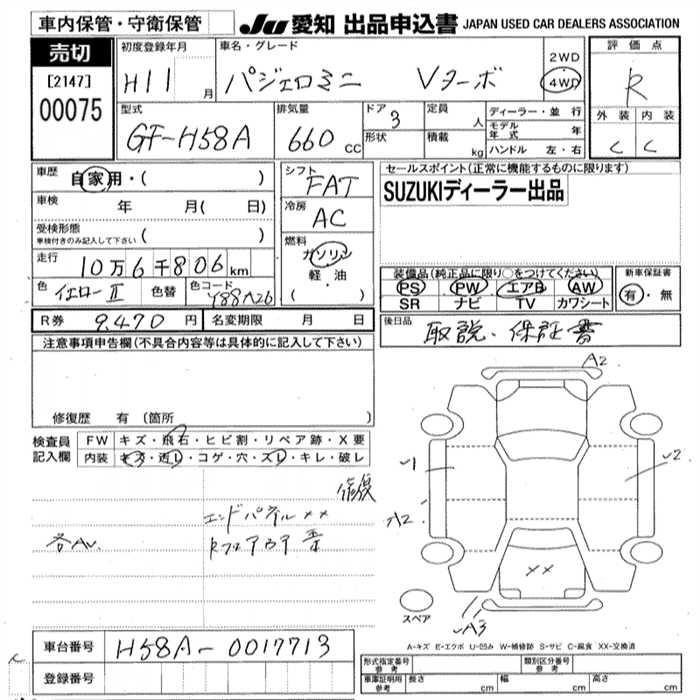 車内保管・守衛保管
JU 愛知 出品申込書 JAPAN USED CAR DEALERS ASSOCIATION
売切
[2147]
00075
初度登録年月
H11 月
車名・グレード
パジェロミニ Vターボ
2WD
4WD
評価点
R
型式
GF-H58A
排気量
660 CC
ドア 3
形状
定員 人
積載 kg
ディーラー・並行
モデル年式 年
ハンドル 左・右
外装 内装
C C
車歴
自家用・( )
車検 年 月( 日)
受検形態
車検付きのみ記入して下さい ( )
走行
10万6千806km
色 イエローⅡ 色替 色コード Y88A26
シフト
FAT
冷房
AC
燃料
ガソリン
軽・油
( )
セールスポイント(正常に機能するものに限ります)
SUZUKIディーラー出品
装備品(純正品に限り○をつけてください)
PS PW エアB AW
SR ナビ TV カワシート
新車保証書
有・無
R券 9,470 円 名変期限 月 日
後日品
取説、保証書
注意事項申告欄(不具合内容等は具体的に記入して下さい)
修復歴 有(箇所 )
検査員記入欄
FW キズ・飛石・ヒビ割・リペア跡・X要
内装 キズ・汚レ・コゲ・穴・スレ・キレ・破レ
修復
エンドパネル ××
各AU.
A2
A2
××
A3
スペア
A-キズ E-エクボ U-凹み W-補修跡 S-サビ C-腐食 XX-交換済
車台番号 H58A-0017713
登録番号
形式指定番号 参考
類別区分番号 参考
車庫証明用 参考 長さ cm 幅 cm 高さ cm